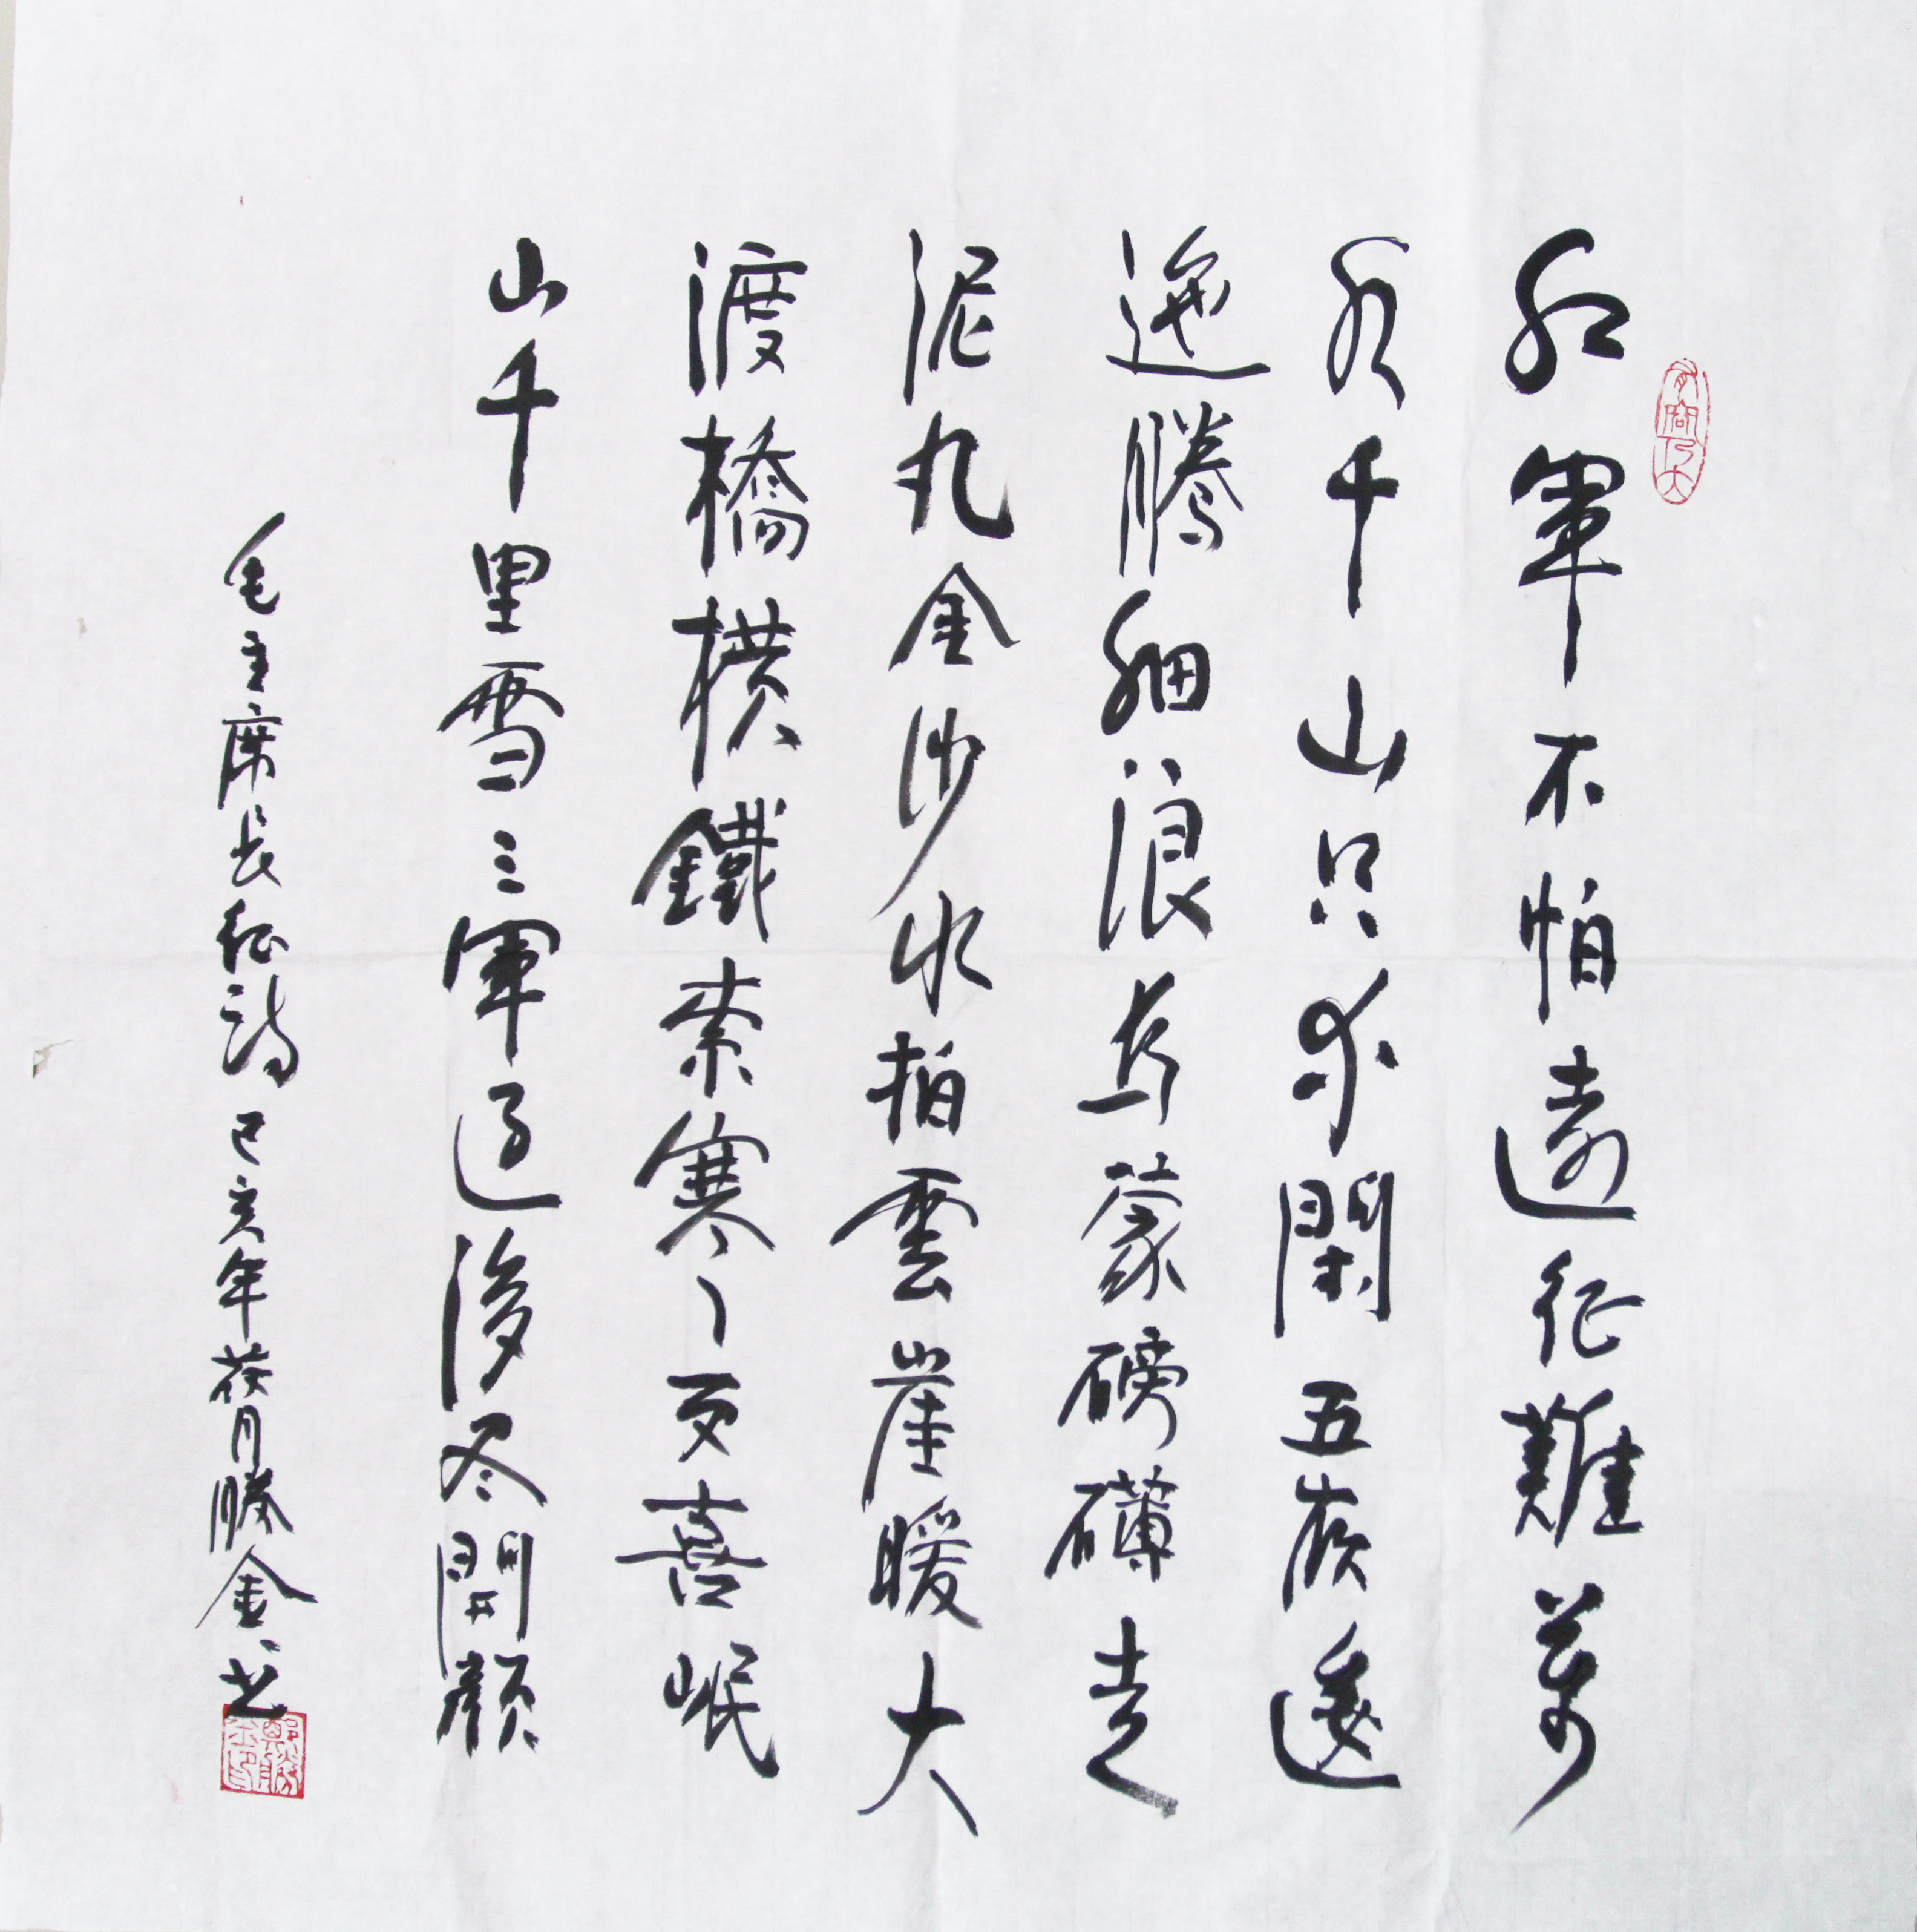 有容乃大
紅軍不怕遠征難萬
水千山只等閑五嶺逶
迤騰細浪烏蒙磅礴走
泥丸金沙水拍雲崖暖大
渡橋橫鐵索寒更喜岷
山千里雪三軍過後尽開顏
毛主席長征詩 己亥年荷月勝金书
鄭勝金印